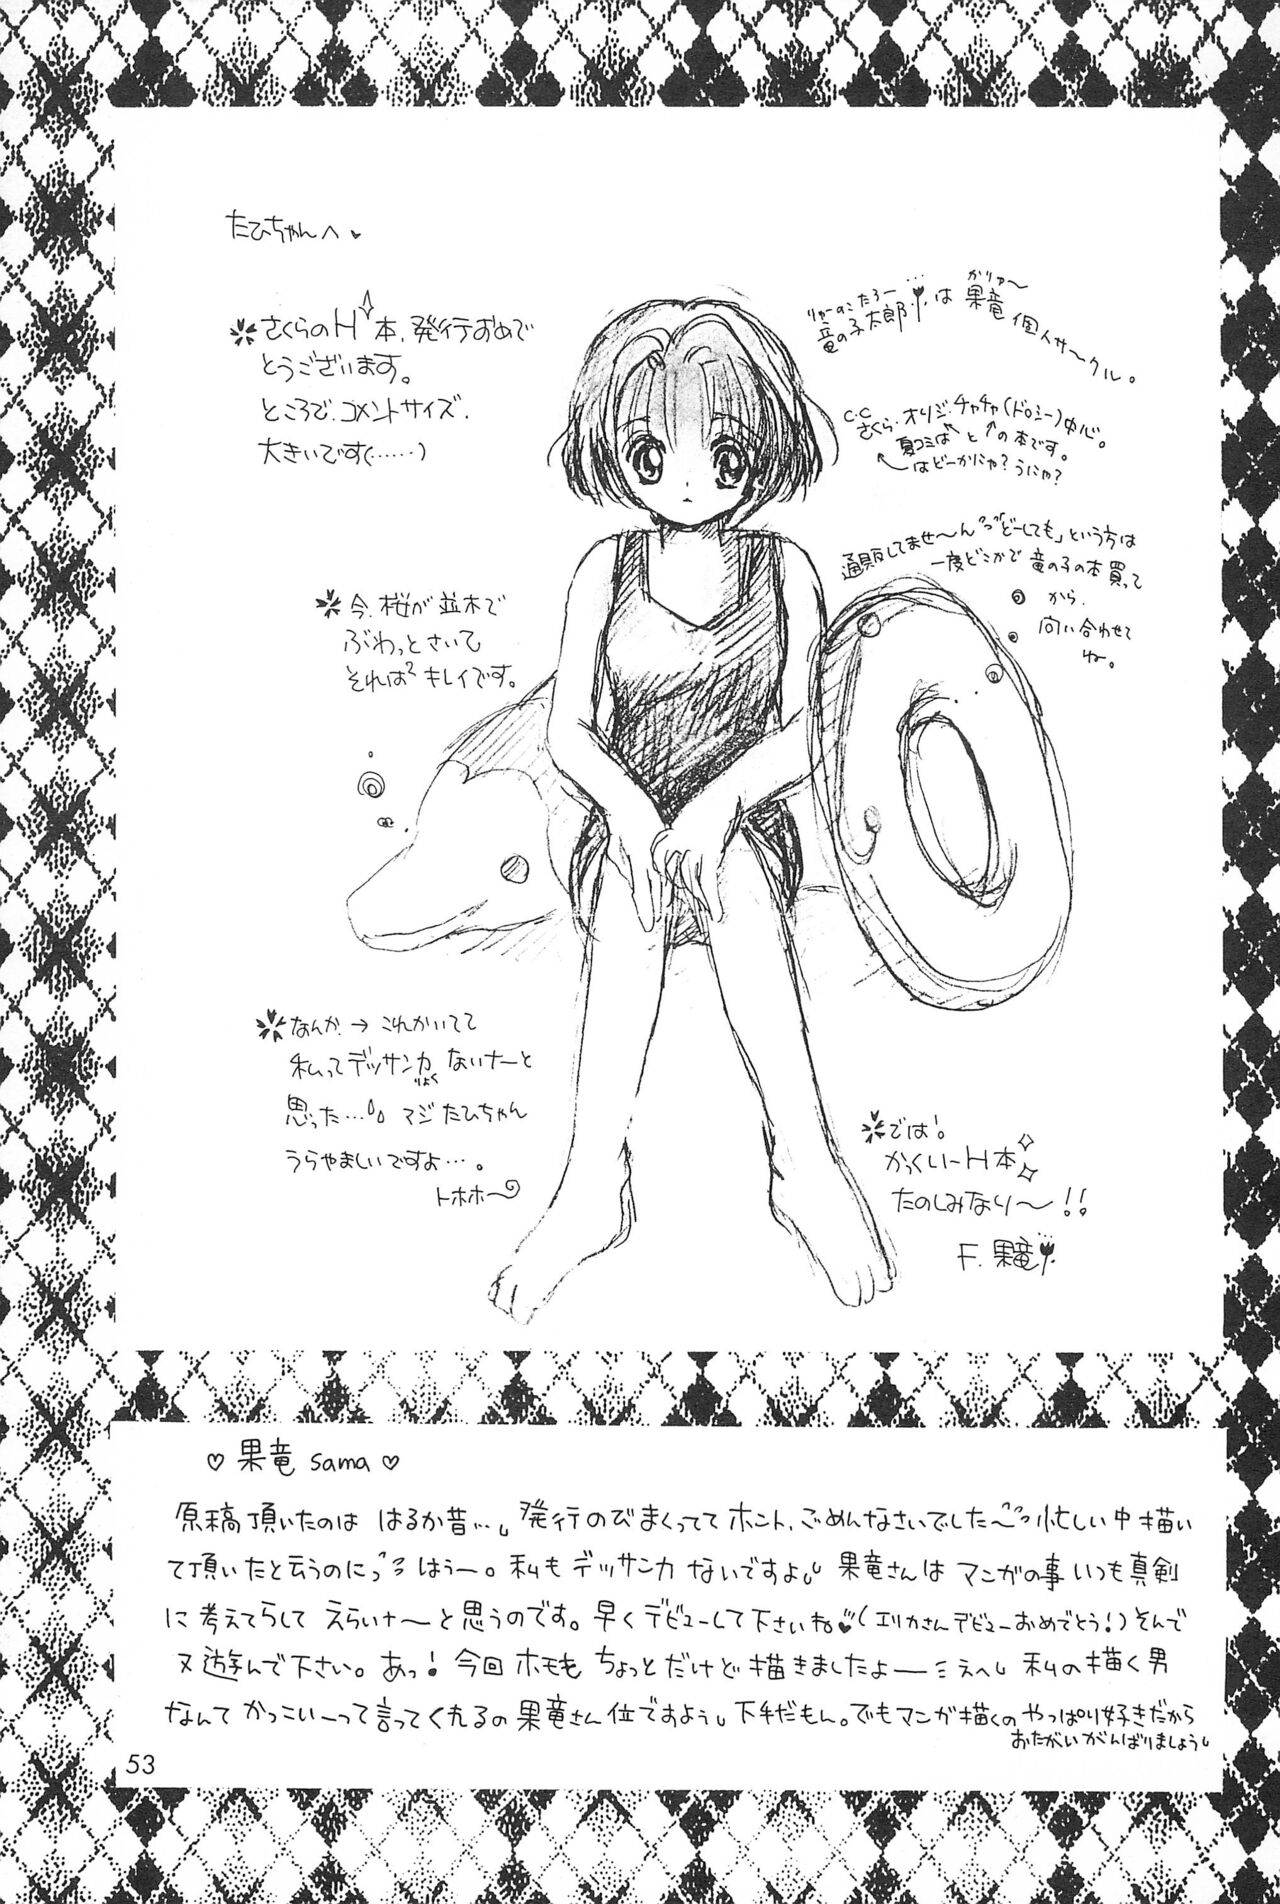 たひちゃんへ
さくらのH本、発行おめで
とうございます。
ところで、コメントサイズ、
大きいですけ(……)
りゅーのこたろー… がりゅ〜
竜の子太郎、は 果竜 個人サークル。
C.C
さくら、オリジ、チャチャ(ドロシー)中心。
夏コミは と の本です。
はどーかにゃ?うにゃ?
通販してませ〜ん 「どーしても」という方は
一度どこかで 竜の子の本買って
から、
問い合わせて
ね。
今、桜が並木で
ぶわっとさいて
それは² キレイです。
なんか、→ これかいてて
私ってデッサン力 ないナーと
りょく
思った…。 マジ たひちゃん
うらやましいですよ…。
トホホ〜
では!
かっくいーH本
たのしみなり〜!!
F.果竜
♡ 果竜 sama ♡
原稿頂いたのは はるか昔…。発行のびまくってて ホント、ごめんなさいでした〜 忙しい中 描い
て頂いたと云うのにっ はうー。私も デッサン力 ないですよ。果竜さんは マンガの事 いつも真剣
に 考えてらして えらいナ〜と思うのです。早くデビューして下さいね♥(エリカさんデビューおめでとう!)そんで
又遊んで下さい。あっ!今回 ホモも ちょっとだけど 描きましたよー 私の描く男
なんて かっこいーって言ってくれるの果竜さん位ですよう。下手だもん。でもマンガ描くの やっぱり好きだから
おたがい がんばりましょう
53